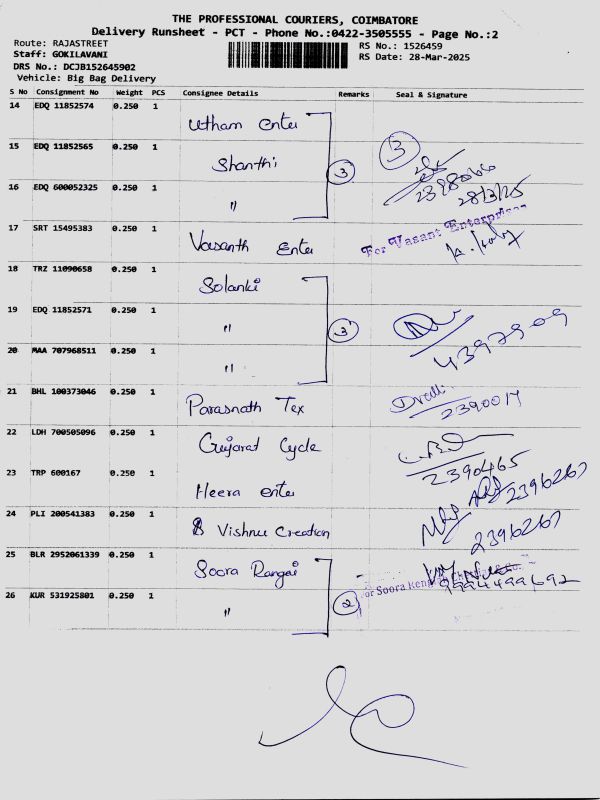 THE PROFESSIONAL COURIERS, COIMBATORE
Delivery Runsheet - PCT - Phone No.:0422-3505555 - Page No.:2
Route: RAJASTREET
RS No.: 1526459
Staff: GOKILAVANI
RS Date: 28-Mar-2025
DRS No.: DCJB152645902
Vehicle: Big Bag Delivery
S No Consignment No Weight PCS Consignee Details Remarks Seal & Signature
14 EDQ 11852574 0.250 1 Utham Enter
15 EDQ 11852565 0.250 1 Shanthi 3 3
16 EDQ 600052325 0.250 1 " 2398066
28/3/25
17 SRT 15495383 0.250 1 Vasanth Enter For Vasant Enterprises
18 TRZ 11090658 0.250 1 Solanki
19 EDQ 11852571 0.250 1 " 3
20 MAA 707968511 0.250 1 " 4397909
21 BHL 100373046 0.250 1 Parasnath Tex 2390017
22 LDH 700505096 0.250 1 Gujarat Cycle 2390465
23 TRP 600167 0.250 1 Heera enter 2396267
24 PLI 200541383 0.250 1 Vishnu Creation 2396267
25 BLR 2952061339 0.250 1 Soora Rangai For Soora
9994499692
26 KUR 531925801 0.250 1 " 2